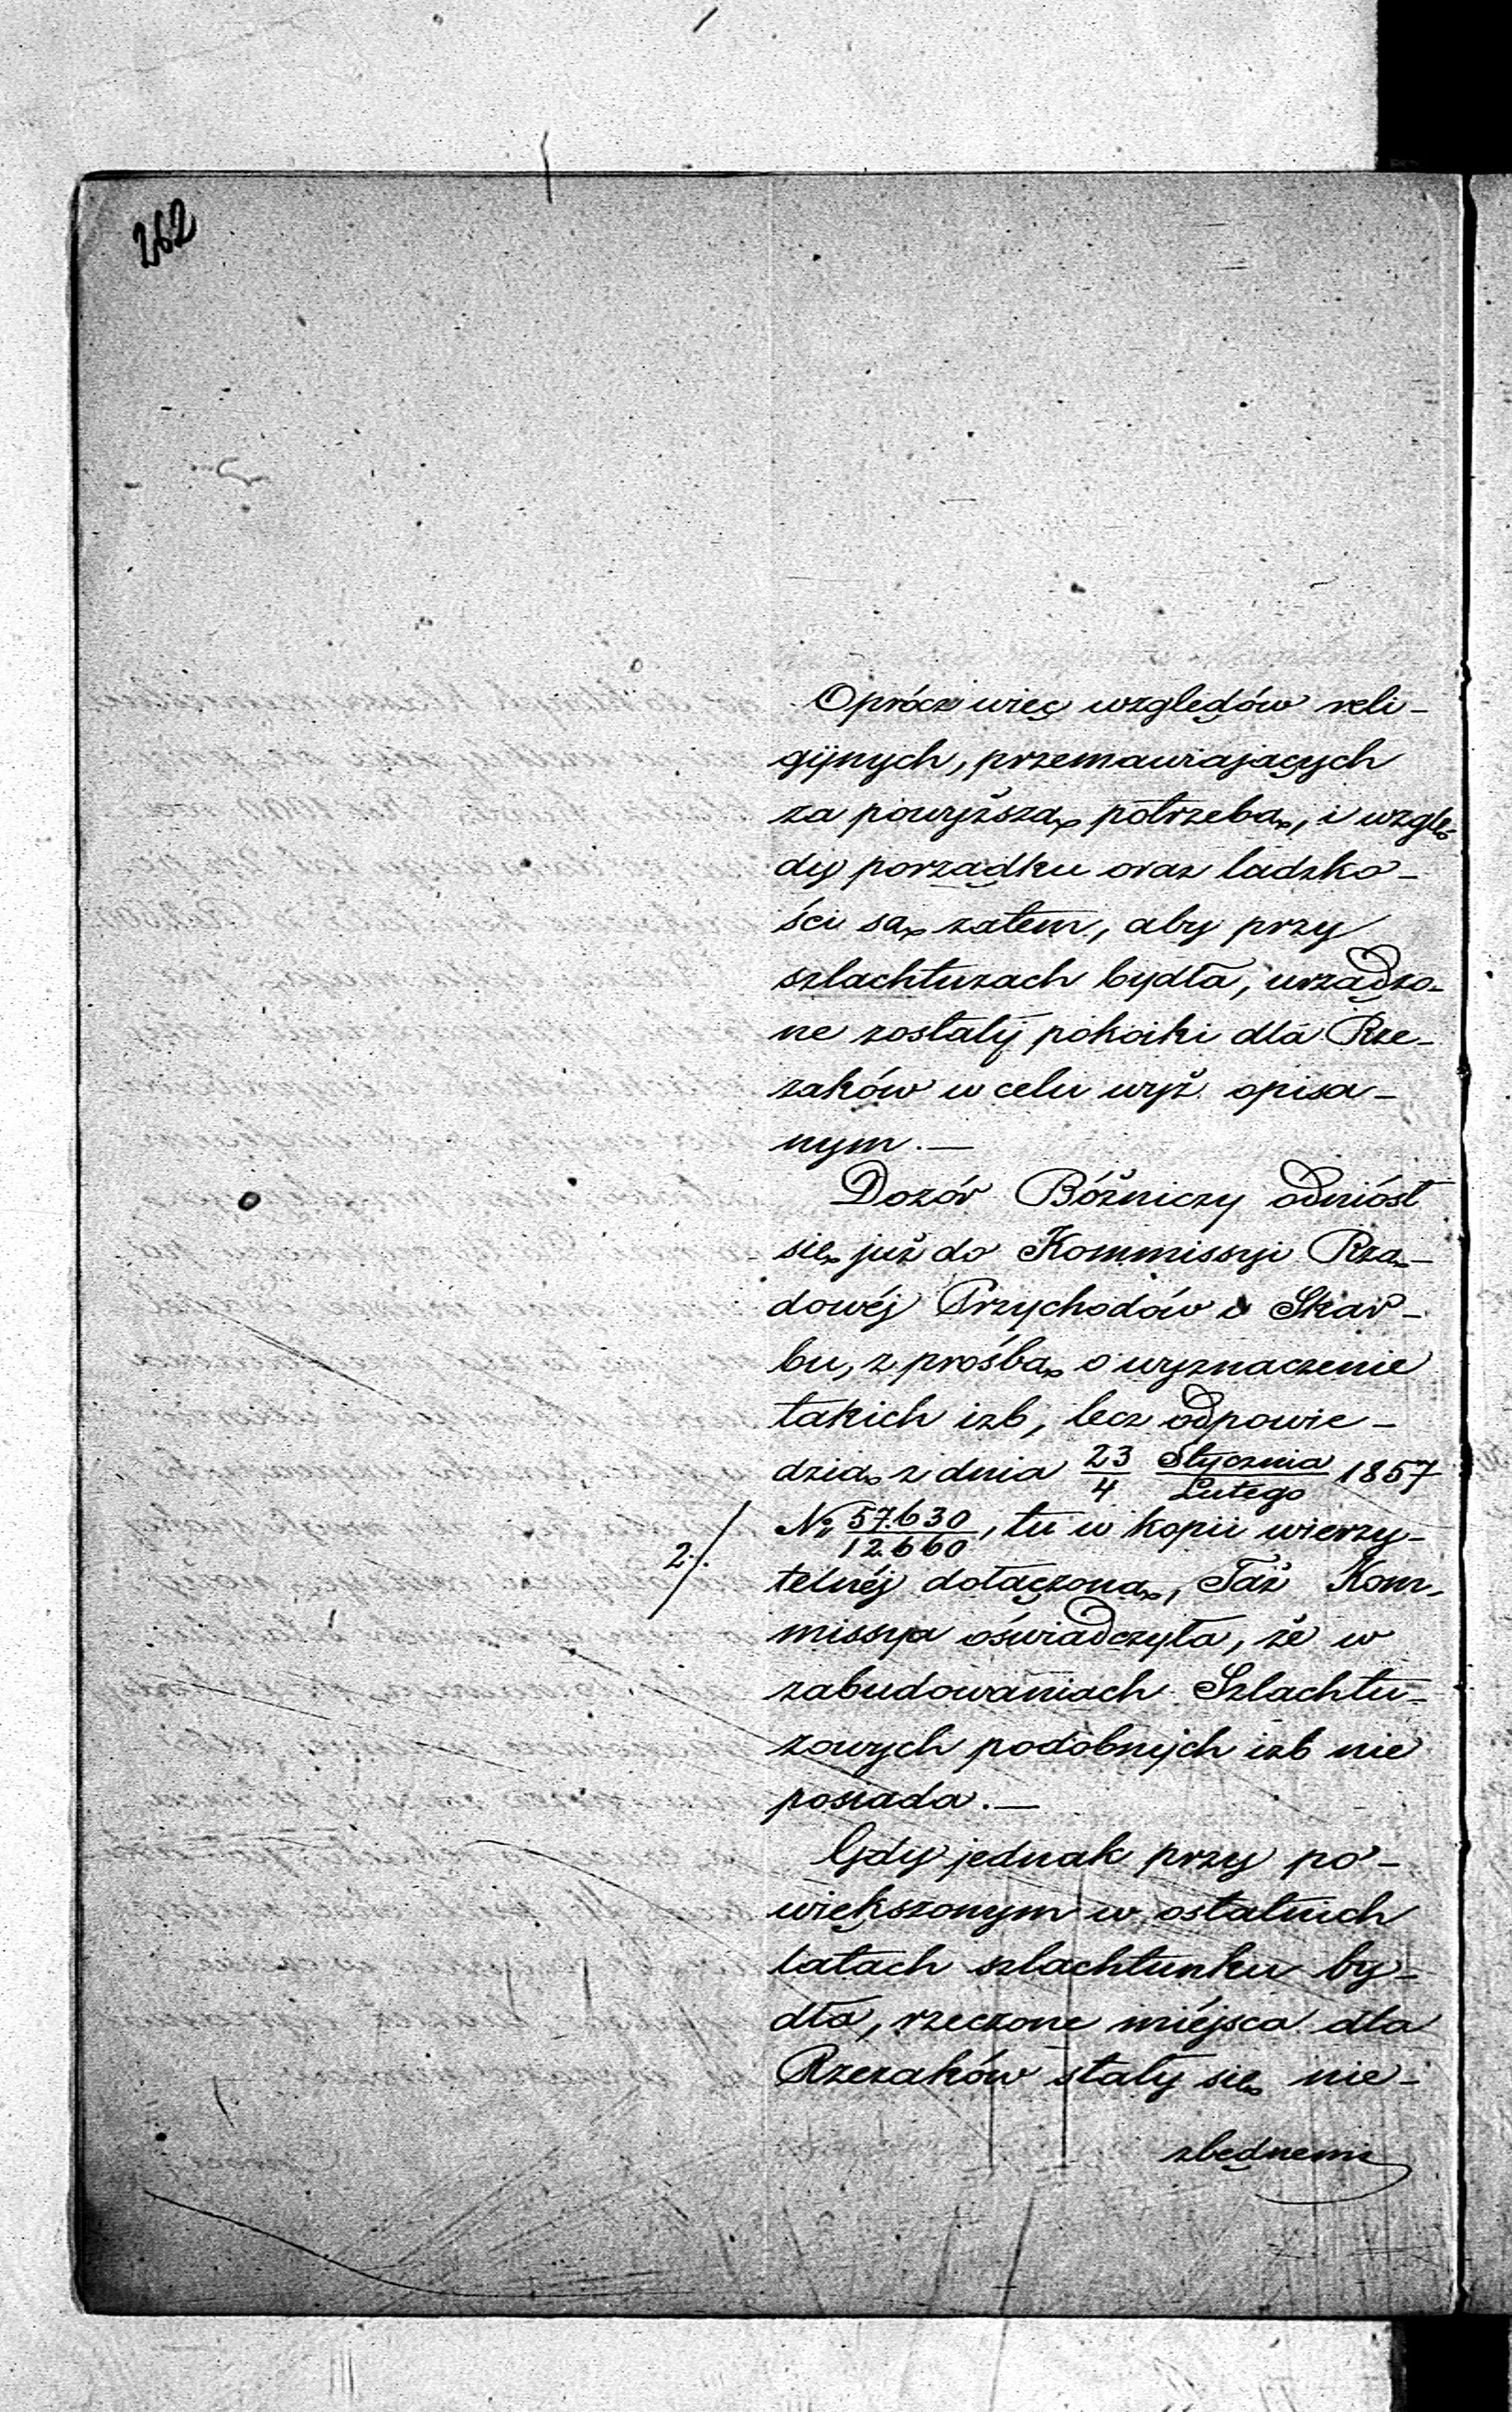 262
Oprócz więc względów reli-
gijnych, przemawiających
za powyższą potrzebą, i wzglę-
dy porządku oraz ludzko-
ści są zatem, aby przy
szlachtuzach bydła, urządzo-
ne zostały pokoiki dla Rze-
zaków w celu wyż. opisa-
nym.—
Dozór Bóżniczy odniósł
się już do Kommissyi Rzą-
dowéj Przychodów i Skar-
bu, z prośbą o wyznaczenie
takich izb, lecz odpowie-
dzią z dnia 23/4 Stycznia/Lutego 1857
№ 57.630/12.660, tu w kopii wierzy-
2./.
telnéj dołączoną, Taż Kom-
missya oświadczyła, że w
zabudowaniach Szlachtu-
zowych podobnych izb nie
posiada.—
Gdy jednak przy po-
większonym w ostatnich
latach szlachtunku by-
dła, rzeczone miéjsca dla
Rzezaków stały się nie-
zbędnemi